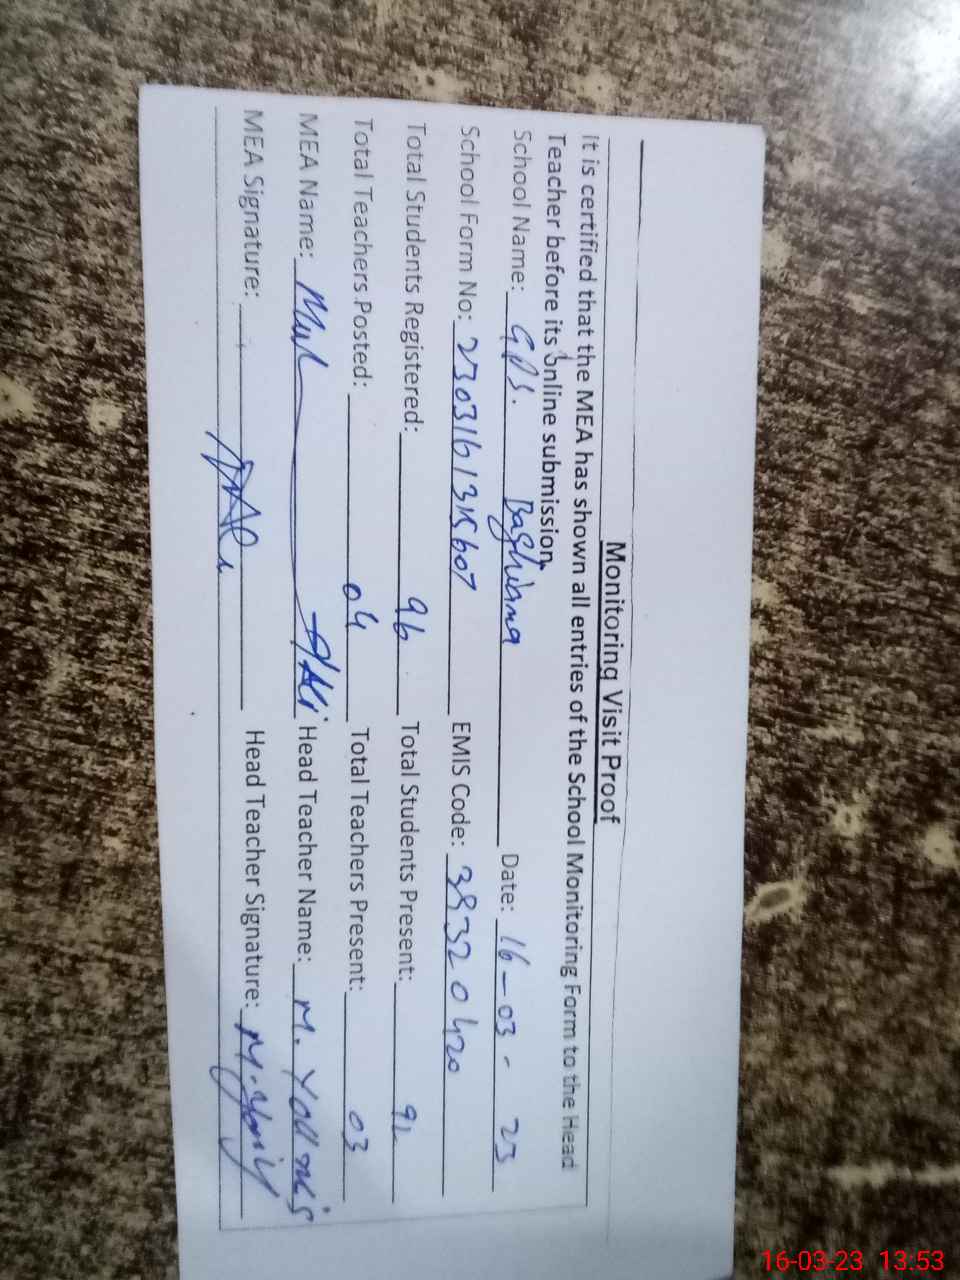 Monitoring Visit Proof
It is certified that the MEA has shown all entries of the School Monitoring Form to the Head
Teacher before its online submission.
School Name: GPS. Date: 16-03-23
School Form No: 2303161315607 EMIS Code: 38320420
Total Students Registered: 96 Total Students Present: 92
Total Teachers Posted: 04 Total Teachers Present: 03
MEA Name: Ali Head Teacher Name: M. Younis
MEA Signature: Head Teacher Signature:
16-03-23 13.53